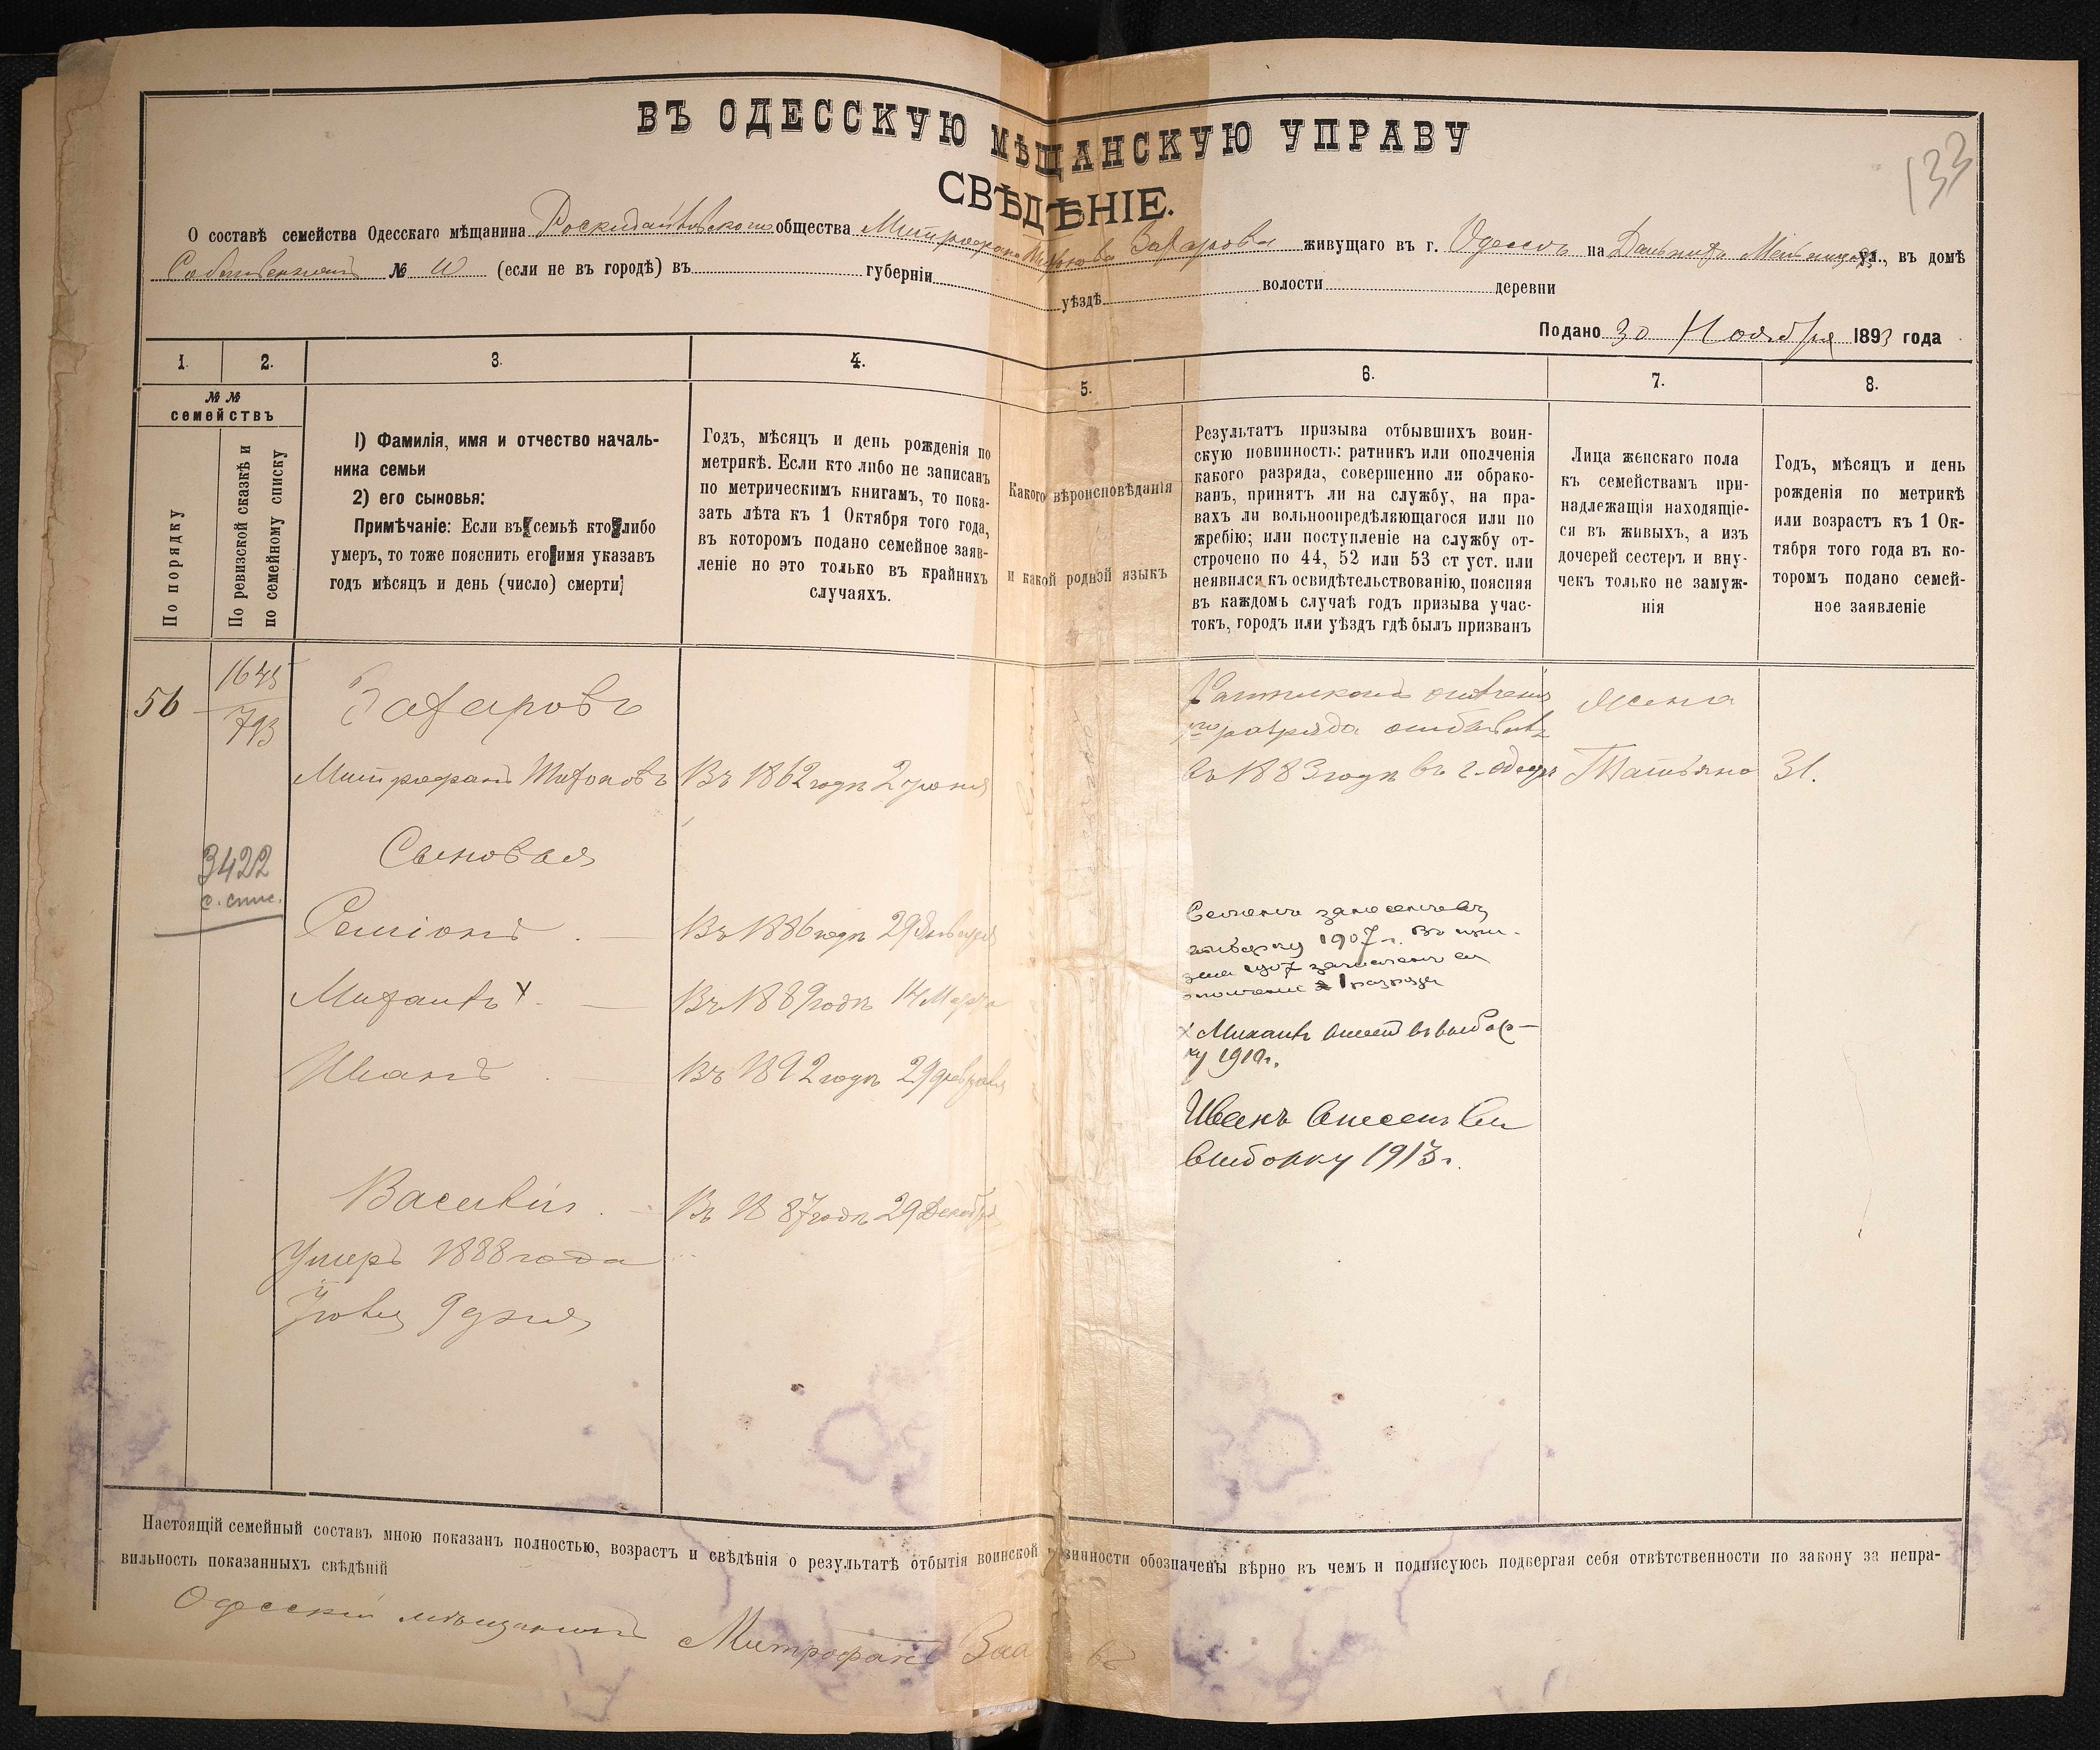 133
ВЪ ОДЕССКУЮ МѢЩАНСКУЮ УПРАВУ
СВѢДѢНІЕ.
О составѣ семейства Одесскаго мѣщанина Роскидайловского общества Митрофана Захарова живущаго въ г. Одессѣ на Дальниц. Мельницах ул., въ домѣ
Собственном № (если не въ городѣ) въ губерніи уѣздѣ волости деревни
Подано 30 Ноября 1893 года
1. 2. 3. 4. 5. 6. 7. 8.
№ №
семействъ
По порядку
По ревизской сказкѣ и
по семейному списку
1) Фамилія, имя и отчество началь-
ника семьи
2) его сыновья:
Примѣчаніе: Если въ семьѣ кто либо
умеръ, то тоже пояснить его имя указавъ
годъ мѣсяцъ и день (число) смерти;
Годъ, мѣсяцъ и день рожденія по
метрикѣ. Если кто либо не записанъ
по метрическимъ книгамъ, то пока-
зать лѣта къ 1 Октября того года,
въ которомъ подано семейное заяв-
леніе но это только въ крайнихъ
случаяхъ.
Какого вѣроисповѣданія
и какой родной языкъ
Результатъ призыва отбывшихъ воин-
скую повинность: ратникъ или ополченія
какого разряда, совершенно ли обрако-
ванъ, принятъ ли на службу, на пра-
вахъ ли вольноопредѣляющагося или по
жребію; или поступленіе на службу от-
строчено по 44, 52 или 53 ст уст. или
неявился къ освидѣтельствованію, поясняя
въ каждомъ случаѣ годъ призыва учас-
токъ, городъ или уѣздъ гдѣ былъ призванъ
Лица женскаго пола
къ семействамъ при-
надлежащія находящіе-
ся въ живыхъ, а изъ
дочерей сестеръ и вну-
чекъ только не замуж-
нія
Годъ, мѣсяцъ и день
рожденія по метрикѣ
или возрастъ къ 1 Ок-
тября того года въ ко-
торомъ подано семей-
ное заявленіе
56
1645
793
Захаровъ
Митрофанъ Тихоновъ
Въ 1862 годѣ 2 июня
Ратникомъ
разряда
въ 1883 годѣ въ г. Одесѣ
Жена
Татьяна
31.
3422
с. спис.
Сыновья
Семіонъ
Въ 1886 годѣ 29 Января
Семенъ занесенъ въ
выборку 1907 г.
1907 зачисленъ въ
ополченіе 1 разряда
Михаилъ х
Въ 1889 годѣ 14 Марта
х Михаилъ внесенъ въ выбор-
ку 1910 г.
Иванъ
Въ 1892 годѣ 29 февраля
Иванъ внесенъ въ
выборку 1913 г.
Василій
Въ 1887 годѣ 29 Декабря
Умеръ 1888 года
Июля 9 дня
Настоящій семейный составъ мною показанъ полностью, возрастъ и свѣдѣнія о результатѣ отбытія воинской повинности обозначены вѣрно въ чемъ и подписуюсь подвергая себя отвѣтственности по закону за непра-
вильность показанныхъ свѣдѣній
Одесскій мѣщанинъ Митрофанъ